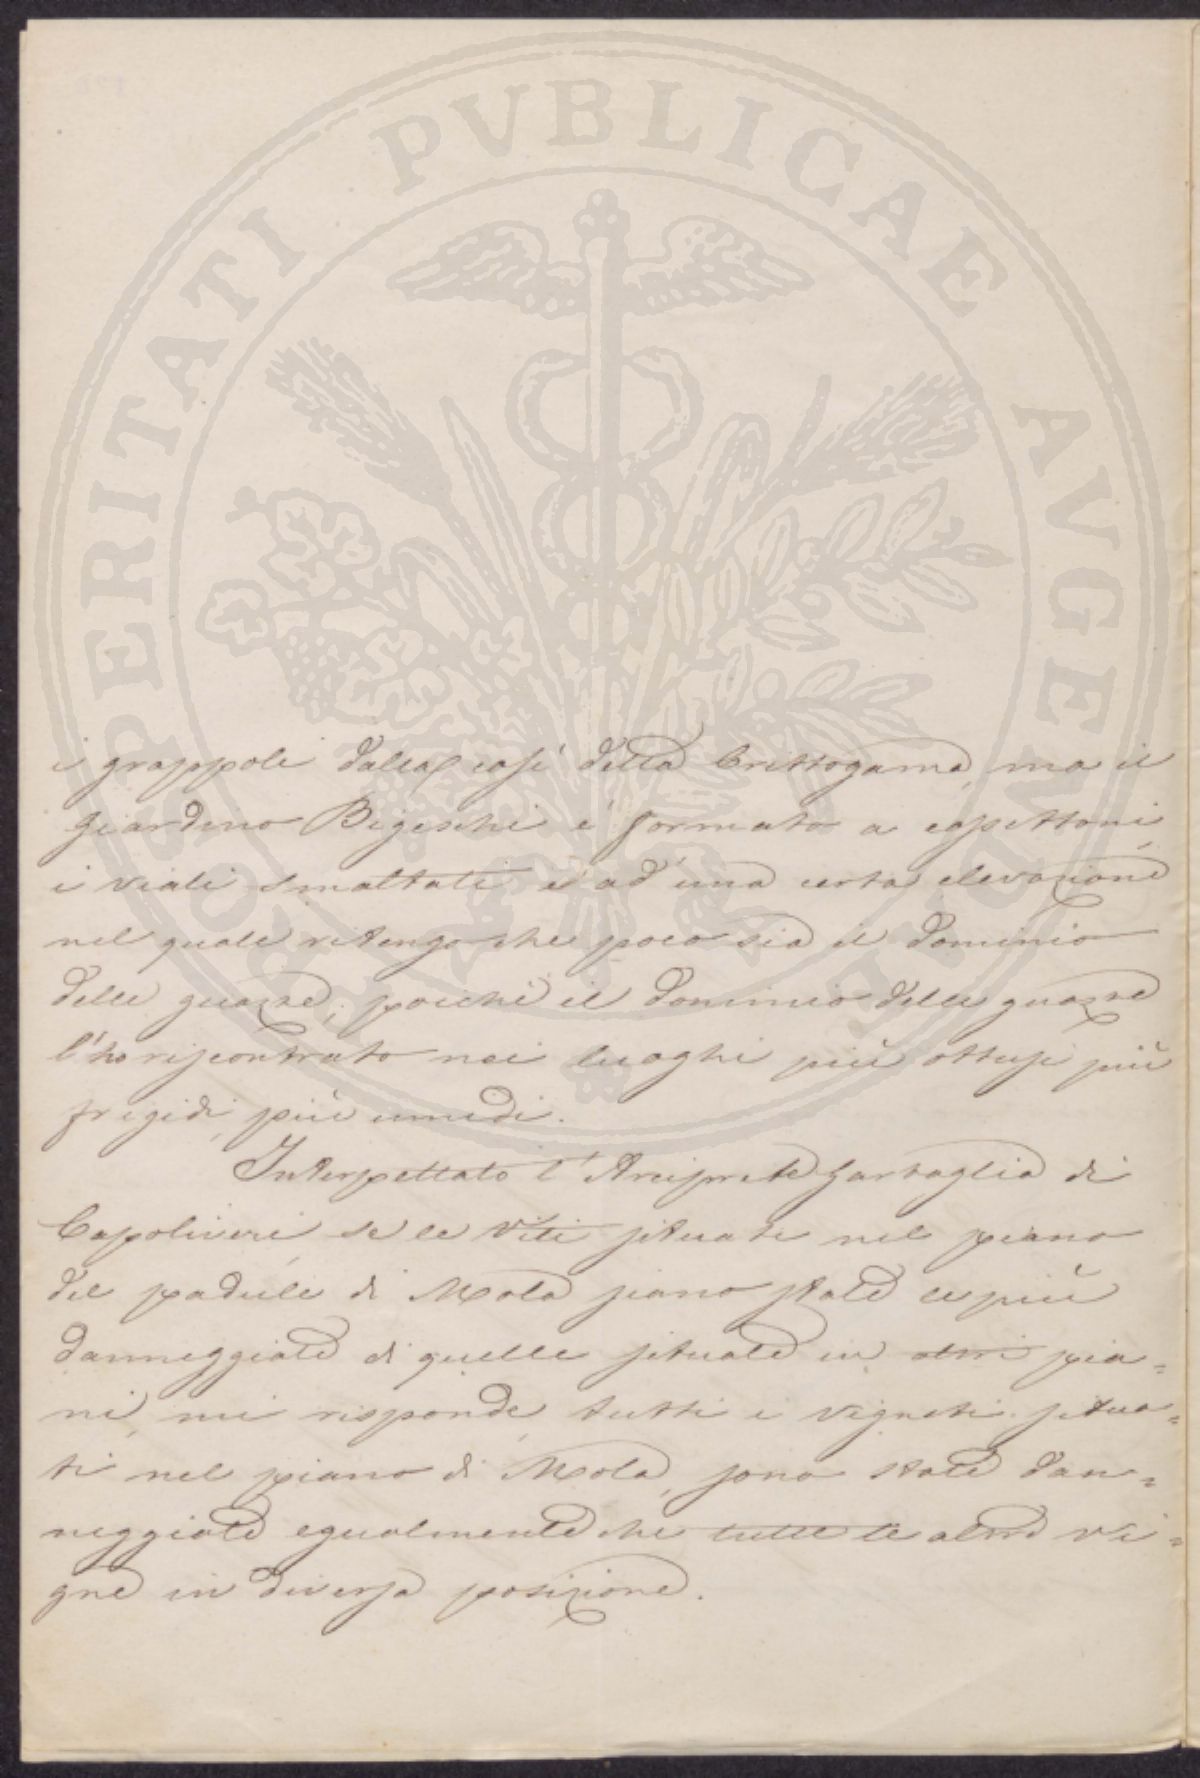 PROSPERITATI PVBLICAE AVGENDAE
i grappoli dalla così detta Crittogama, ma il
giardino Bigeschi è formato a caspettoni
i viali smaltati e ad una certa elevazione
nel quale ritengo che poco sia il dominio
delle guazze, poiché il dominio delle guazze
l'ho riscontrato nei luoghi più ottusi più
frigidi, più umidi.
Interpettato l'Arciprete Gartaglia di
Capoliveri se le viti situate nel piano
del padule di Mola siano state le più
danneggiate di quelle situate in altri pia=
ni, mi risponde, tutti i vigneti situa=
ti nel piano di Mola, sono state dan=
neggiate egualmente che tutte le altre vi=
gne in diversa posizione.